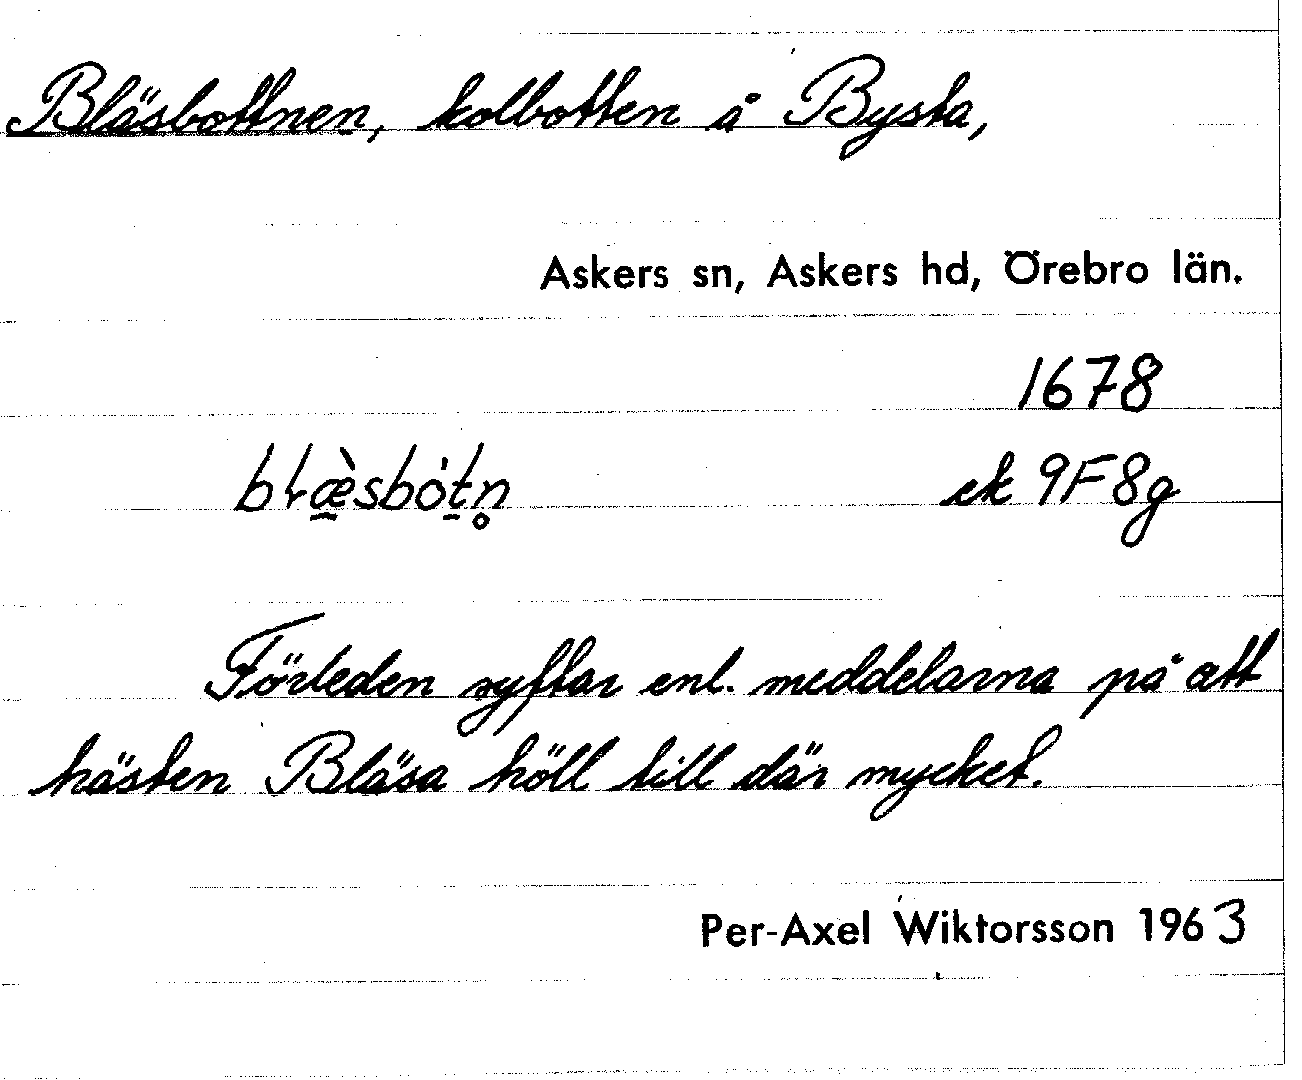 Bläsbottnen, kolbotten å Bysta,
Askers sn, Askers hd, Örebro län.
1678
blæ̀sbótn̥ ek 9F8g
Förleden syftar enl. meddelarna på att
hästen Bläsa höll till där mycket.
Per-Axel Wiktorsson 1963